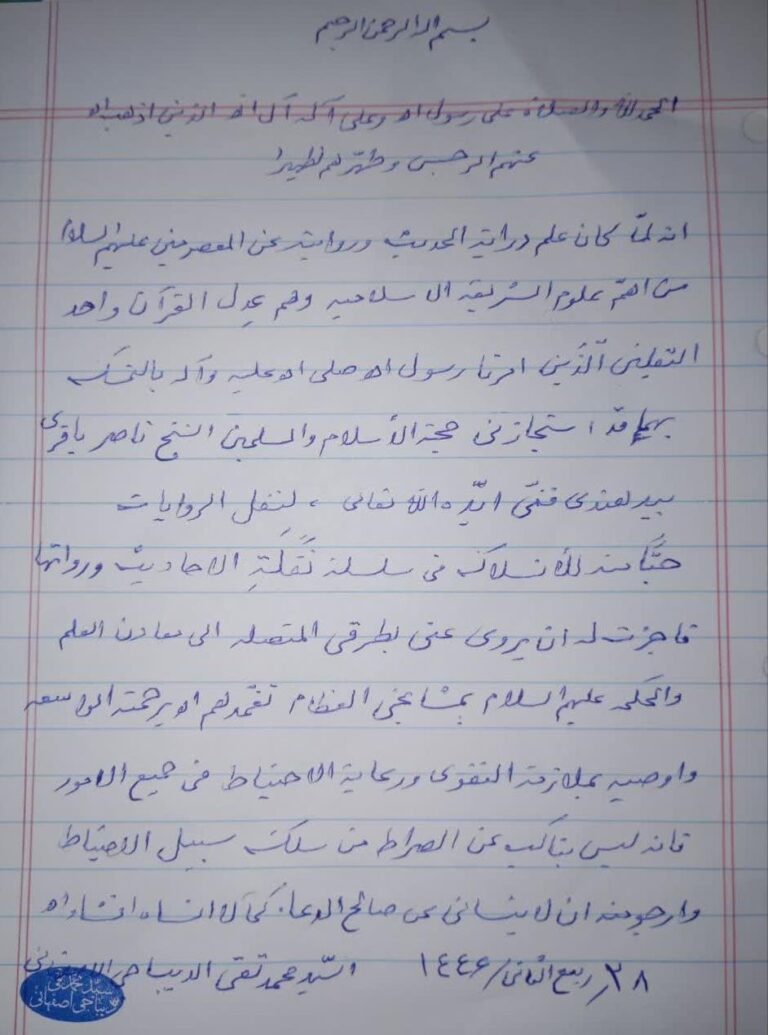 بسم الله الرحمن الرحیم
الحمد لله والصلاة علی رسول الله وعلی آله آل الله الذین اذهب الله
عنهم الرجس وطهّرهم تطهیرا
انه لمّا کان علم درایة الحدیث وروایته عن المعصومین علیهم السلام
من اهمّ علوم الشریعة الاسلامیه وهم عِدل القرآن واحد
الثقلین الّذَین امرنا رسول الله صلی الله علیه وآله بالتمسک
بهما قد استجازنی حجة الأسلام والمسلمین الشیخ ناصر باقری
بیدهندی منّی ایّده الله تعالی ، لِنقل الروایات
حبّاً منه للأنسلاک فی سلسلة نَقَلَةِ الاحادیث ورواتها
فاجزت له ان یروی عنی بطرقی المتصله الی معادن العلم
والحکمه علیهم السلام بمشایخی العظام تغمّدهم الله برحمته الواسعه
واوصیه بملازمة التقوی ورعایة الاحتیاط فی جمیع الامور
فانه لیس بناکب عن الصراط من سلک سبیل الاحتیاط
وارجو منه ان لا ینسانی من صالح الدعاء کما لا انساه انشاءالله
۲۸/ ربیع الثانی/ ۱۴۴۶ السیّد محمد تقی الدیباجی الاصفهانی
سید محمد تقی
دیباجی اصفهانی